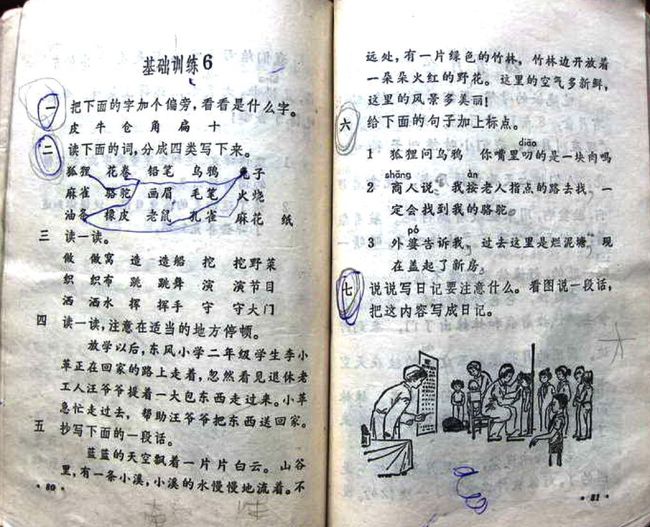 基础训练6
一 把下面的字加个偏旁，看看是什么字。
皮 牛 仓 角 扁 十
二 读下面的词，分成四类写下来。
狐狸 花卷 铅笔 乌鸦 兔子
麻雀 骆驼 画眉 毛笔 火烧
油条 橡皮 老鼠 孔雀 麻花 纸
三 读一读。
做 做窝 造 造船 挖 挖野菜
织 织布 跳 跳舞 演 演节目
洒 洒水 挥 挥手 守 守大门
四 读一读，注意在适当的地方停顿。
放学以后，东风小学二年级学生李小
草正在回家的路上走着，忽然看见退休老
工人汪爷爷提着一大包东西走过来。小草
急忙走过去，帮助汪爷爷把东西送回家。
五 抄写下面的一段话。
蓝蓝的天空飘着一片片白云。山谷
里，有一条小溪，小溪的水慢慢地流着。不
·80·
远处，有一片绿色的竹林，竹林边开放着
一朵朵火红的野花。这里的空气多新鲜，
这里的风景多美丽！
六 给下面的句子加上标点。
diāo
1 狐狸问乌鸦 你嘴里叼的是一块肉吗
shāng àn
2 商人说 我按老人指点的路去找 一
定会找到我的骆驼
pó
3 外婆告诉我 过去这里是烂泥塘 现
在盖起了新房
七 说说写日记要注意什么。看图说一段话，
把这内容写成日记。
·81·